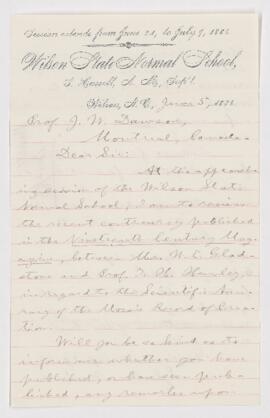 Session extends from June 21, to July 9, 1886
Wilson State Normal School,
S. Hassell, A. M., Sup't.
Wilson, N.C., June 5, 1886.
Prof. J. W. Dawson,
Montreal, Canada.
Dear Sir:
At the approaching session of the Wilson State
Normal School, I am to review
the recent controversy published
in the Nineteenth Century Magazine, between Mr. W. E. Gladstone and Prof. T. H. Huxley,
in regard to the Scientific Accuracy of the Mosaic Record of Creation.
Will you be so kind as to
inform me whether you have
published, or have seen published, any remarks upon